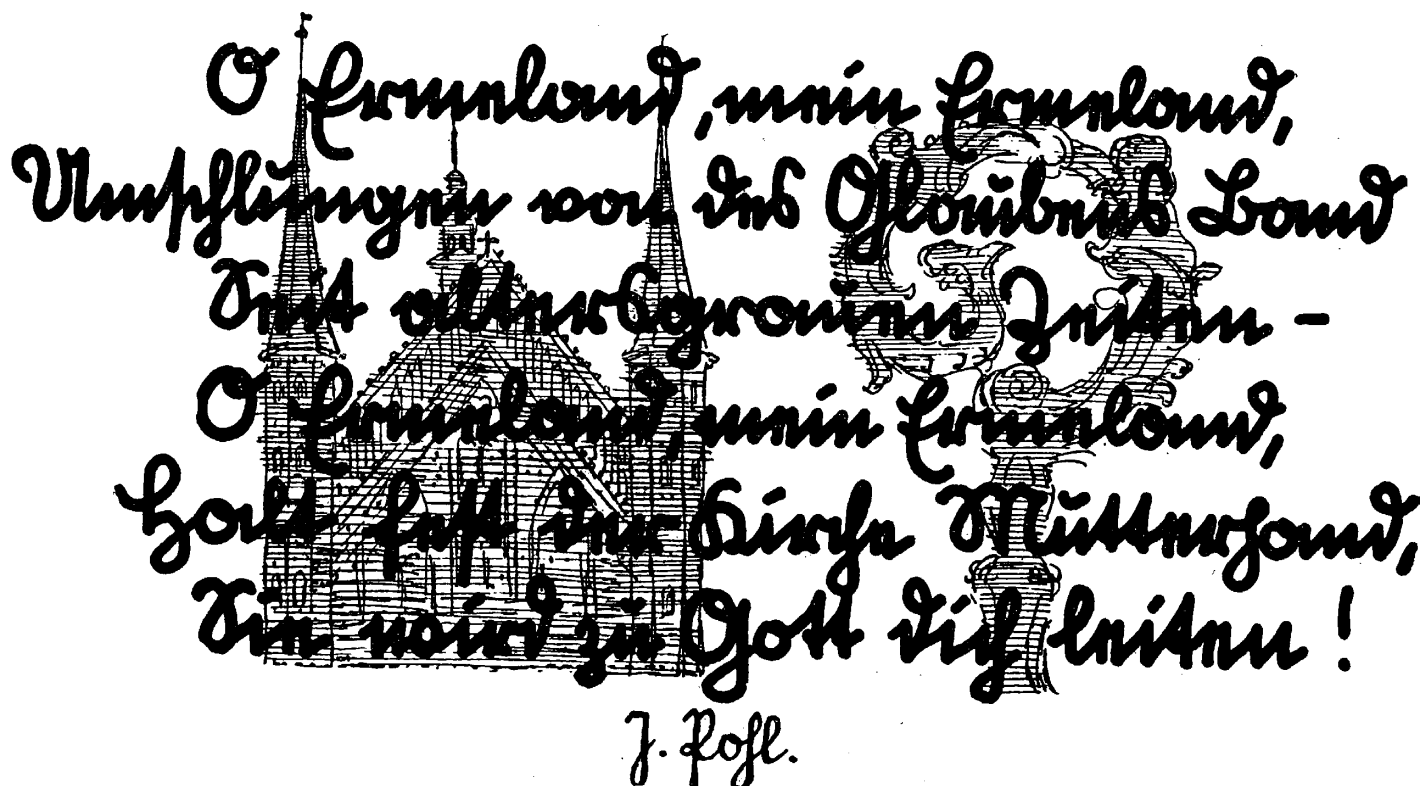 O Ermeland, mein Ermeland,
Umschlungen von des Glaubens Band
Seit altersgrauen Zeiten –
O Ermeland, mein Ermeland,
Halt fest der Kirche Mutterhand,
Sie wird zu Gott dich leiten!
J. Pohl.